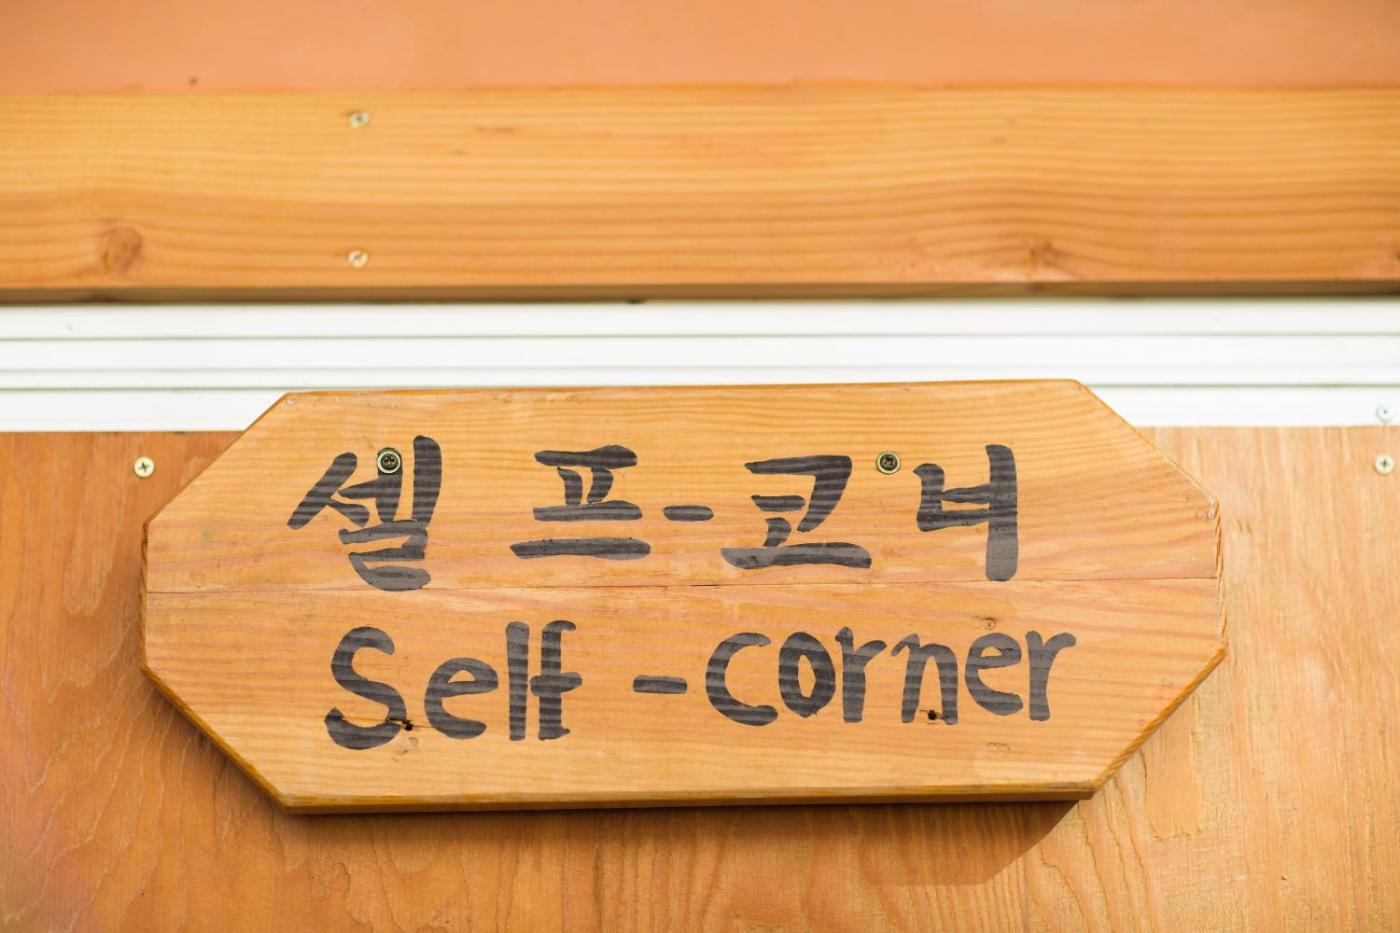 셀 프-코너
Self-corner